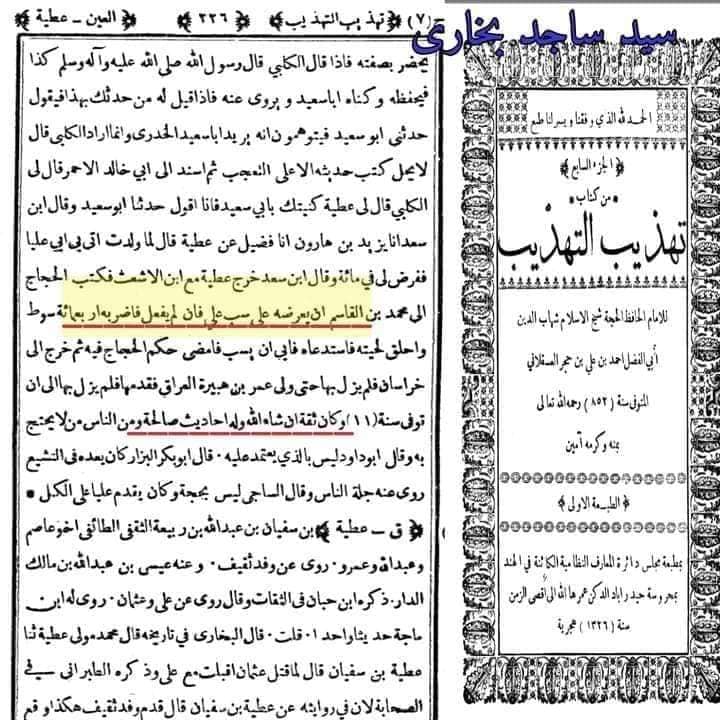 (٧) ﴿ تهذيب التهذيب ﴾ ﴿ ٢٢٦ ﴾ ﴿ العين - عطية ﴾
يحضر بصفته فاذا قال الكلبي قال رسول الله صلى الله عليه وآله وسلم كذا
فيحفظه وكناه اباسعيد و يروى عنه فاذا قيل له من حدثك بهذا فيقول
حدثنى ابو سعيد فيتوهمون انه يريد اباسعيد الخدرى وانما اراد الكلبى قال
لا يحل كتب حديثه الا على التعجب ثم اسند الى ابي خالد الاحمر قال لى
الكلبي قال لى عطية كنيتك بابي سعيد فانا اقول حدثنا ابوسعيد وقال ابن
سعد انا يزيد بن هارون انا فضيل عن عطية قال لما ولدت اتى بى ابي عليا
ففرض لى في مائة وقال ابن سعد خرج عطية مع ابن الاشعث فكتب الحجاج
الى محمد بن القاسم ان يعرضه على سب علي فان لم يفعل فاضربه اربعمائة سوط
واحلق لحيته فاستدعاه فابى ان يسب فامضى حكم الحجاج فيه ثم خرج الى
خراسان فلم يزل بها حتى ولى عمر بن هبيرة العراق فقدمها فلم يزل بها الى ان
توفى سنة (١١) وكان ثقة ان شاء الله وله احاديث صالحة ومن الناس من لا يحتج
به وقال ابوداود ليس بالذي يعتمد عليه · قال ابوبكر البزار كان يعده فى التشيع
روى عنه جلة الناس وقال الساجى ليس بحجة وكان يقدم عليا على الكل •
﴿ ق - عطية ﴾ بن سفيان بن عبدالله بن ربيعة الثقفى الطائفى اخو عاصم
وعبدالله وعمرو · روى عن وفد ثقيف · وعنه عيسى بن عبدالله بن مالك
الدار · ذكره ابن حبان فى الثقات وقال روى عن على وعثمان · روى له ابن
ماجة حديثا واحدا · قلت · قال البخارى في تاريخه قال محمد مولى عطية ثنا
عطية بن سفيان قال لما قتل عثمان اقبلت مع على وذكره الطبرانى فى
الصحابة لان في روايته عن عطية بن سفيان قال قدم وفد ثقيف هكذا وقع
سید ساجد بخاری
الحمد لله الذي وفقنا ويسر لنا طبع
﴿ الجزء السابع ﴾
• من كتاب •
تهذيب التهذيب
للامام الحافظ الحجة شيخ الاسلام شهاب الدين
أبي الفضل احمد بن علي بن حجر العسقلاني
المتوفى سنة (٨٥٢) رحمه الله تعالى
بمنه وكرمه آمين
﴿ الطبعة الاولى ﴾
بمطبعة مجلس دائرة المعارف النظامية الكائنة في الهند
بمحروسة حيدراباد الدكن عمرها الله الى اقصى الزمن
سنة (١٣٢٦) هجرية